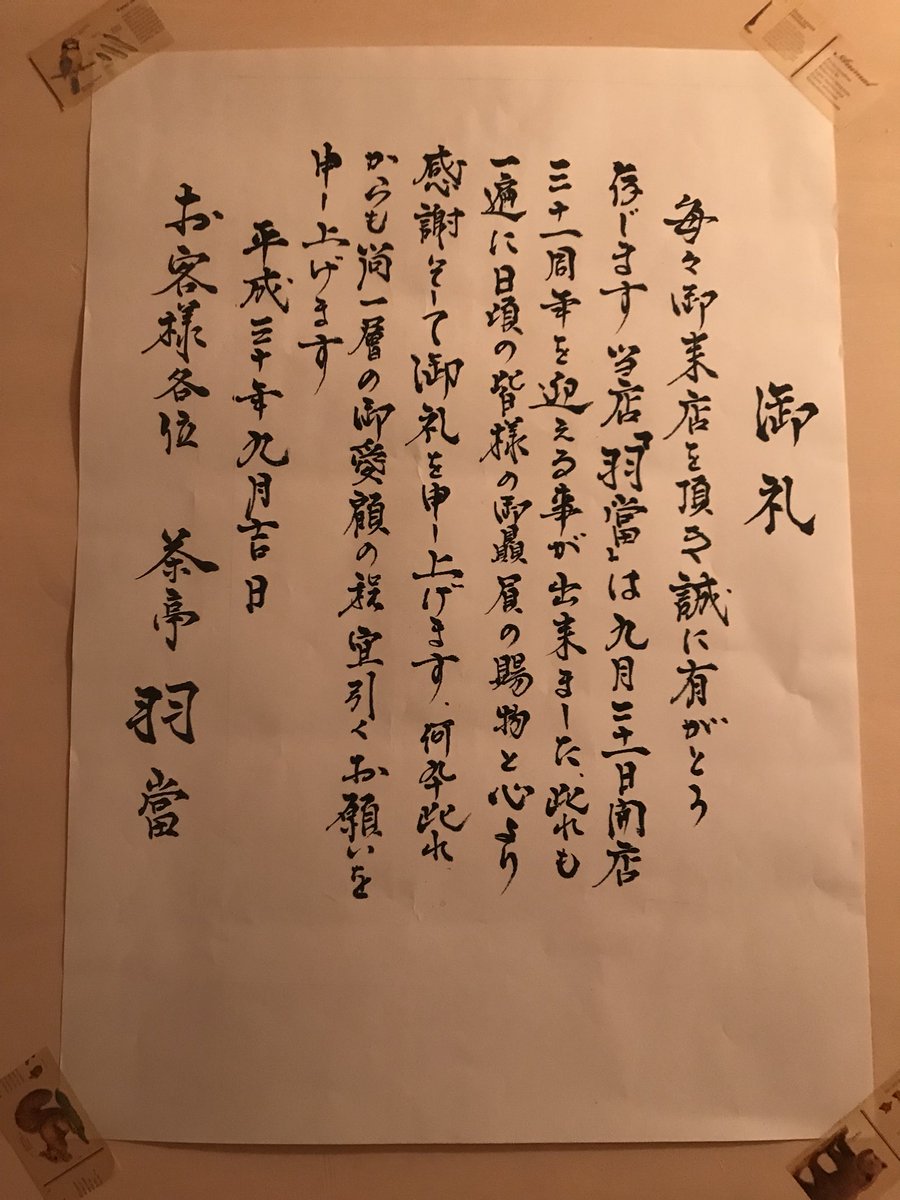 御礼
毎々御来店を頂き誠に有がとう
存じます 当店「羽當」は九月二十一日開店
二十一周年を迎える事が出来ました、此れも
一遍に日頃の皆様の御贔屓の賜物と心より
感謝そして御礼を申し上げます、何卒此れ
からも尚一層の御愛顧の程宜引くお願いを
申し上げます
平成三十年九月吉日
お客様各位 茶亭 羽當